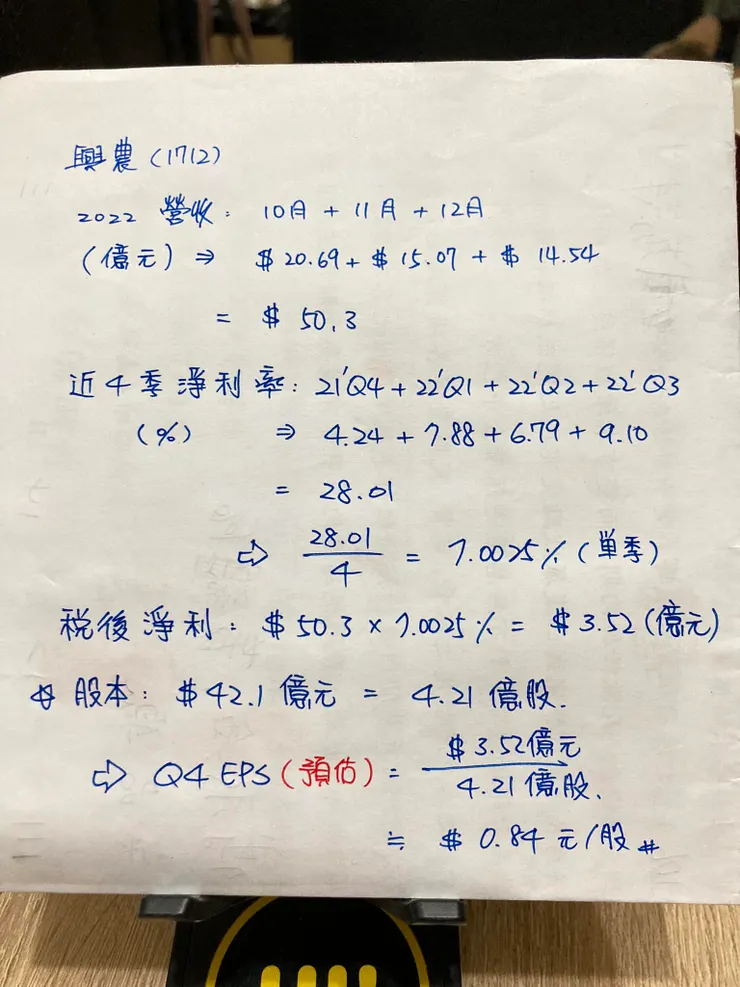 興農(1712)
2022 營收: 10月 + 11月 + 12月
(億元) ⇒ $20.69 + $15.07 + $14.54
= $50.3
近4季淨利率: 21'Q4 + 22'Q1 + 22'Q2 + 22'Q3
(%) ⇒ 4.24 + 7.88 + 6.79 + 9.10
= 28.01
⇨ 28.01/4 = 7.0025% (単季)
稅後淨利: $50.3 × 7.0025% = $3.52 (億元)
☆ 股本: $42.1億元 = 4.21億股.
⇨ Q4 EPS (預估) = $3.52億元/4.21億股.
≒ $0.84元/股 #